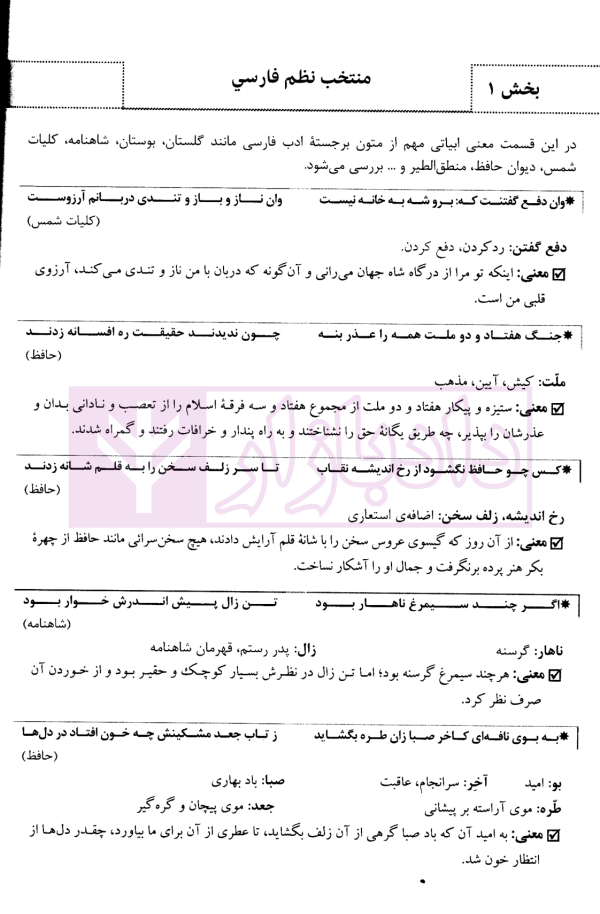 بخش ۱
منتخب نظم فارسي
در این قسمت معنی ابیاتی مهم از متون برجستهٔ ادب فارسی مانند گلستان، بوستان، شاهنامه، کلیات
شمس، دیوان حافظ، منطق‌الطیر و ... بررسی می‌شود.
✱وان دفع گفتنت که: برو شه به خانه نیست وان ناز و باز و تندی دربانم آرزوست
(کلیات شمس)
دفع گفتن: ردکردن، دفع کردن.
☑ معنی: اینکه تو مرا از درگاه شاه جهان می‌رانی و آن‌گونه که دربان با من ناز و تندی می‌کند، آرزوی
قلبی من است.
✱جنگ هفتاد و دو ملت همه را عذر بنه چون ندیدند حقیقت ره افسانه زدند
(حافظ)
ملّت: کیش، آیین، مذهب
☑ معنی: ستیزه و پیکار هفتاد و دو ملت از مجموع هفتاد و سه فرقهٔ اسلام را از تعصب و نادانی بدان و
عذرشان را بپذیر، چه طریق یگانهٔ حق را نشناختند و به راه پندار و خرافات رفتند و گمراه شدند.
✱کس چو حافظ نگشود از رخ اندیشه نقاب تا سر زلف سخن را به قلم شانه زدند
(حافظ)
رخ اندیشه، زلف سخن: اضافه‌ی استعاری
☑ معنی: از آن روز که گیسوی عروس سخن را با شانهٔ قلم آرایش دادند، هیچ سخن‌سرائی مانند حافظ از چهرهٔ
بکر هنر پرده برنگرفت و جمال او را آشکار نساخت.
✱اگر چند سیمرغ ناهار بود تن زال پیش اندرش خوار بود
(شاهنامه)
ناهار: گرسنه زال: پدر رستم، قهرمان شاهنامه
☑ معنی: هرچند سیمرغ گرسنه بود؛ اما تن زال در نظرش بسیار کوچک و حقیر بود و از خوردن آن
صرف نظر کرد.
✱به بوی نافه‌ای کاخر صبا زان طره بگشاید ز تاب جعد مشکینش چه خون افتاد در دل‌ها
(حافظ)
بو: امید آخر: سرانجام، عاقبت صبا: باد بهاری
طّره: موی آراسته بر پیشانی جعد: موی پیچان و گره‌گیر
☑ معنی: به امید آن که باد صبا گرهی از آن زلف بگشاید، تا عطری از آن برای ما بیاورد، چقدر دل‌ها از
انتظار خون شد.
دادیاروار